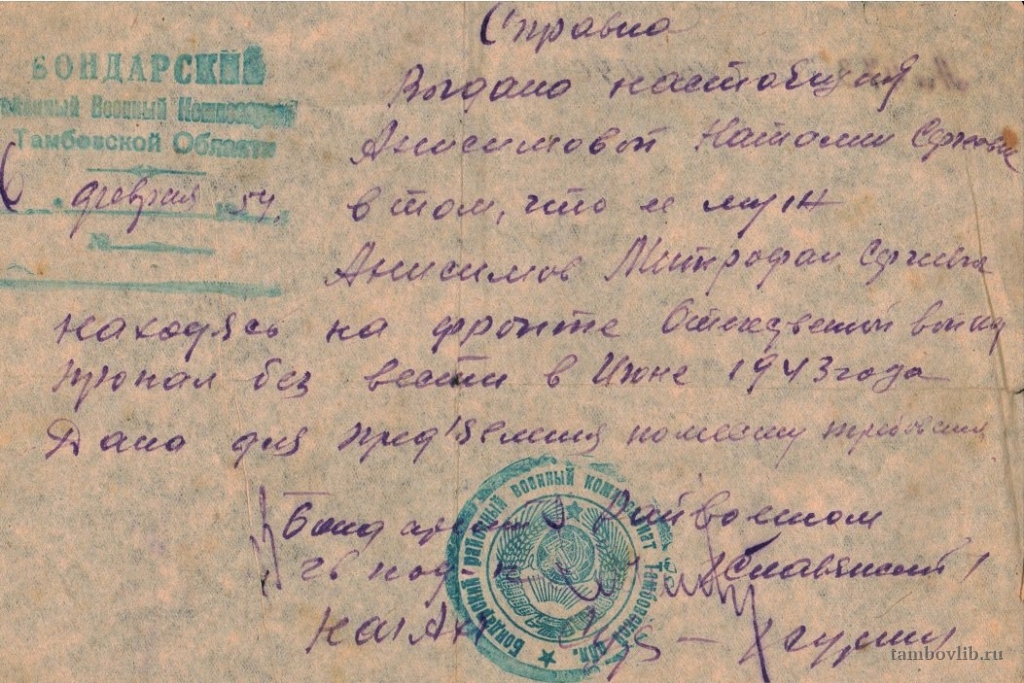 Справка
БОНДАРСКИЙ
Районный Военный Комиссариат
Тамбовской Области
6 февраля 54.
№
Выдана настоящия
Анисимовой Наталии
в том, что ее муж
Анисимов Митрофан
находясь на фронте Отечественой войны
пропал без вести в Июне 1943 года
Дана для пред'явления по месту требования
Бондарский Райвоенком
Славянский /
Нач
Бондарский районный военный комиссариат Тамбовская обл.
tambovlib.ru